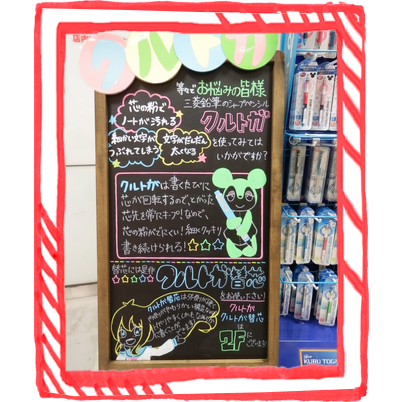 クルトガ
芯の粉で
ノートが汚れる
細かい文字が
つぶれてしまう
文字がだんだん
太くなる
等など お悩みの皆様
三菱鉛筆のシャープペンシル
クルトガ
を使ってみては
いかがですか?
クルトガは書くたびに
芯が回転するので、とがった
芯先を常にキープ!なので、
芯の粉がでにくい!細く クッキリ
書き続けられる!☆☆☆
替芯には是非
☆☆☆☆☆
クルトガ替芯
をお使いください!
クルトガ替芯は
クルトガ
クルトガ替芯
は
1F
KURU TOGA